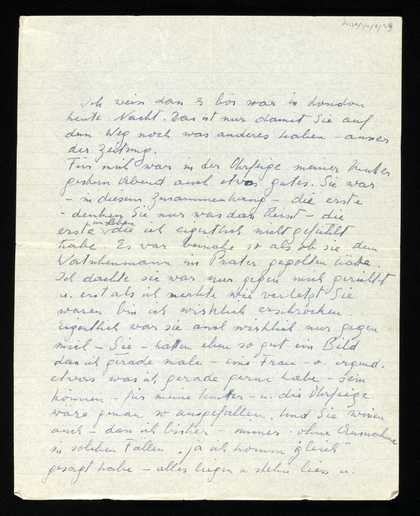 Ich weiss dass es bös war in London
heute Nacht. Das ist nur damit Sie auf
dem Weg noch was anderes haben - ausser
der Zeitung.
Für mich war in der Ohrfeige meiner Mutter
gestern Abend auch etwas gutes. Sie war
- in diesem Zusammenhang - die erste
- denken Sie nur was das heisst - die
erste die ich eigentlich nicht gefühlt
habe. Es war beinahe so als ob sie dem
Watschenmann im Prater gegolten habe.
Ich dachte sie war nur gegen mich gerichtet
u. erst als ich merkte wie verletzt Sie
waren bin ich wirklich erschrocken.
eigentlich war sie auch wirklich nur gegen
mich - Sie - hätten eben so gut ein Bild
das ich gerade male - eine Frau - o. irgend
etwas was ich gerade gerne habe - sein
können - für meine Mutter - u. die Ohrfeige
wäre genau so ausgefallen. Und Sie wissen
auch - dass ich bisher - immer - ohne Ausnahme
in solchen Fällen - ja ich komme gleich
gesagt habe - alles liegen u. stehn liess u.